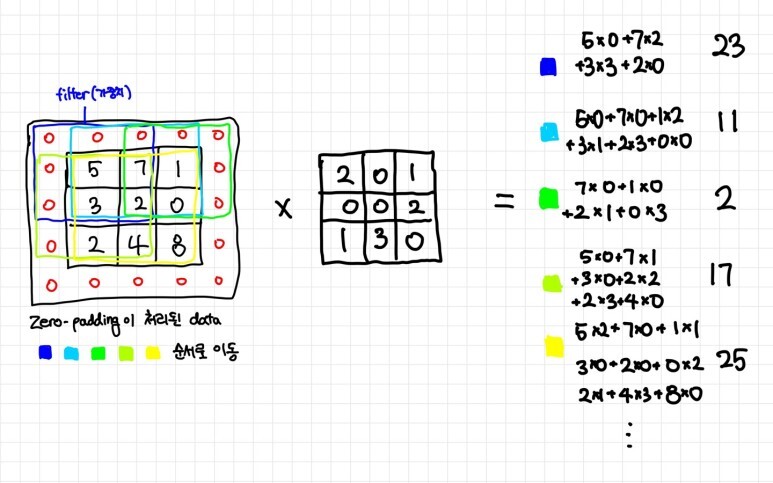 filter(가중치)
0 0 0 0 0
0 5 7 1 0
0 3 2 0 0
0 2 4 8 0
0 0 0 0 0
×
2 0 1
0 0 2
1 3 0
=
5×0+7×2
+3×3+2×0
23
5×0+7×0+1×2
+3×1+2×3+0×0
11
7×0+1×0
+2×1+0×3
2
5×0+7×1
+3×0+2×2
+2×3+4×0
17
5×2+7×0+1×1
3×0+2×0+0×2
2×1+4×3+8×0
25
⋮
Zero-padding이 처리된 data
순서로 이동